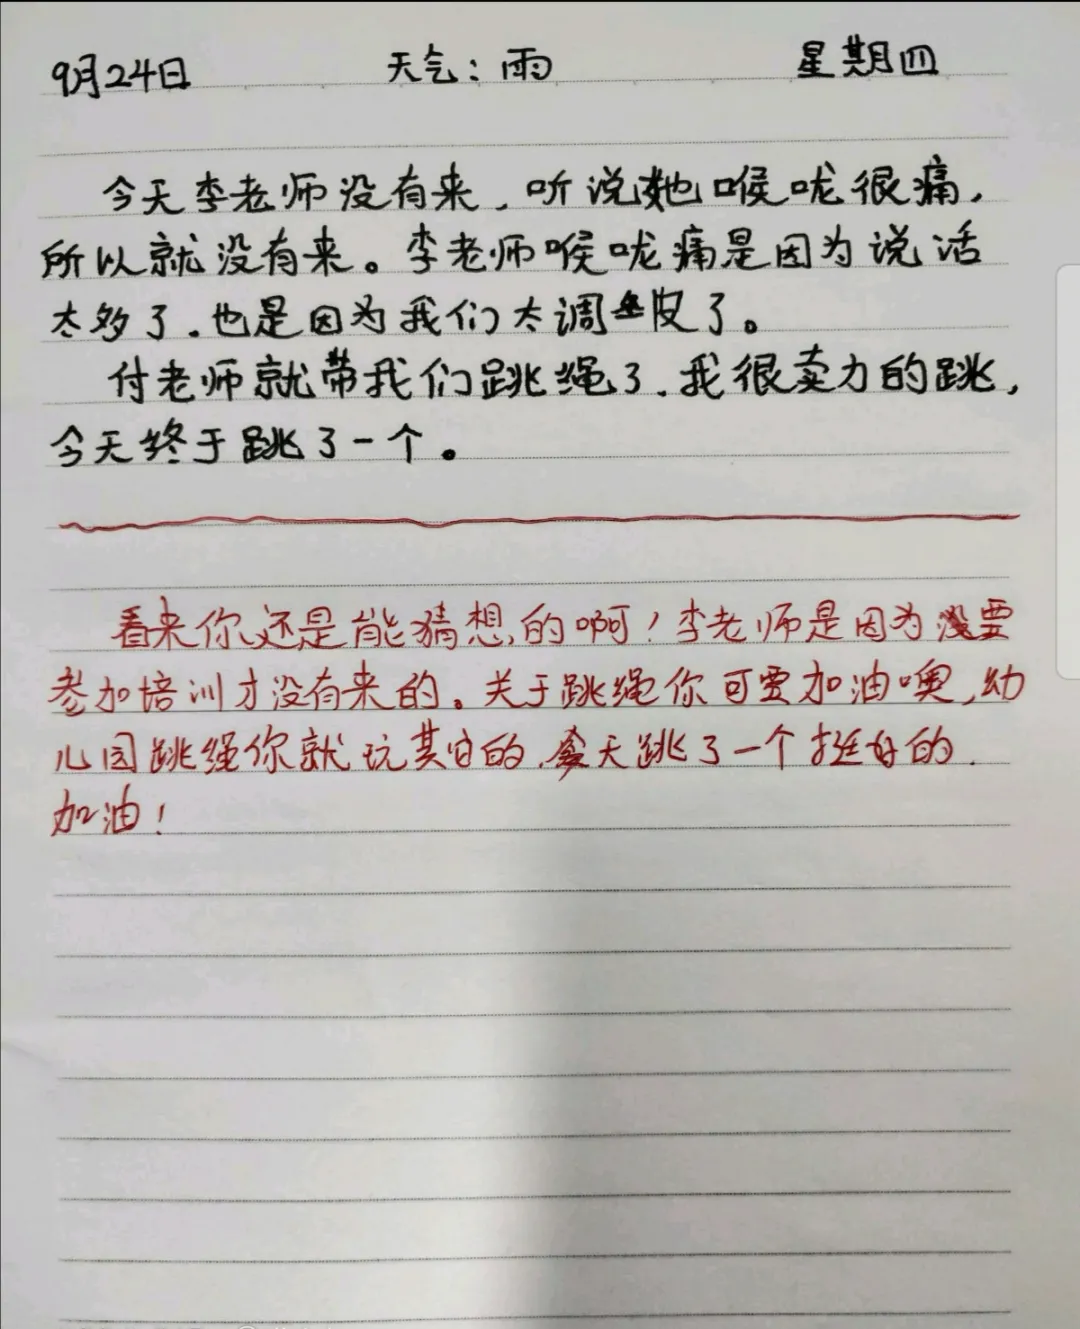 9月24日 天气：雨 星期四
今天李老师没有来，听说她喉咙很痛，
所以就没有来。李老师喉咙痛是因为说话
太多了，也是因为我们太调皮了。
付老师就带我们跳绳了，我很卖力的跳，
今天终于跳了一个。
看来你还是能猜想的啊！李老师是因为要
参加培训才没有来的。关于跳绳你可要加油噢，幼
儿园跳绳你就玩其它的，今天跳了一个挺好的，
加油！